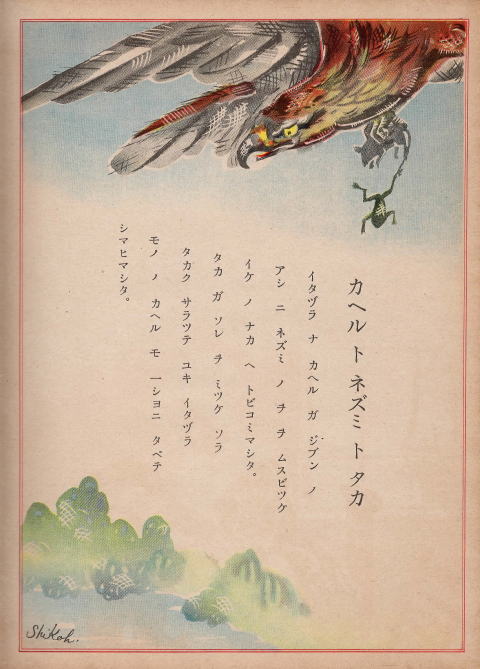 カヘル ト ネズミ ト タカ
イタヅラ ナ カヘル ガ ジブン ノ
アシ ニ ネズミ ノ ヲ ヲ ムスビツケ
イケ ノ ナカ ヘ トビコミマシタ。
タカ ガ ソレ ヲ ミツケ ソラ
タカク サラツテ ユキ イタヅラ
モノ ノ カヘル モ 一シヨニ タベテ
シマヒマシタ。
Shikoh.